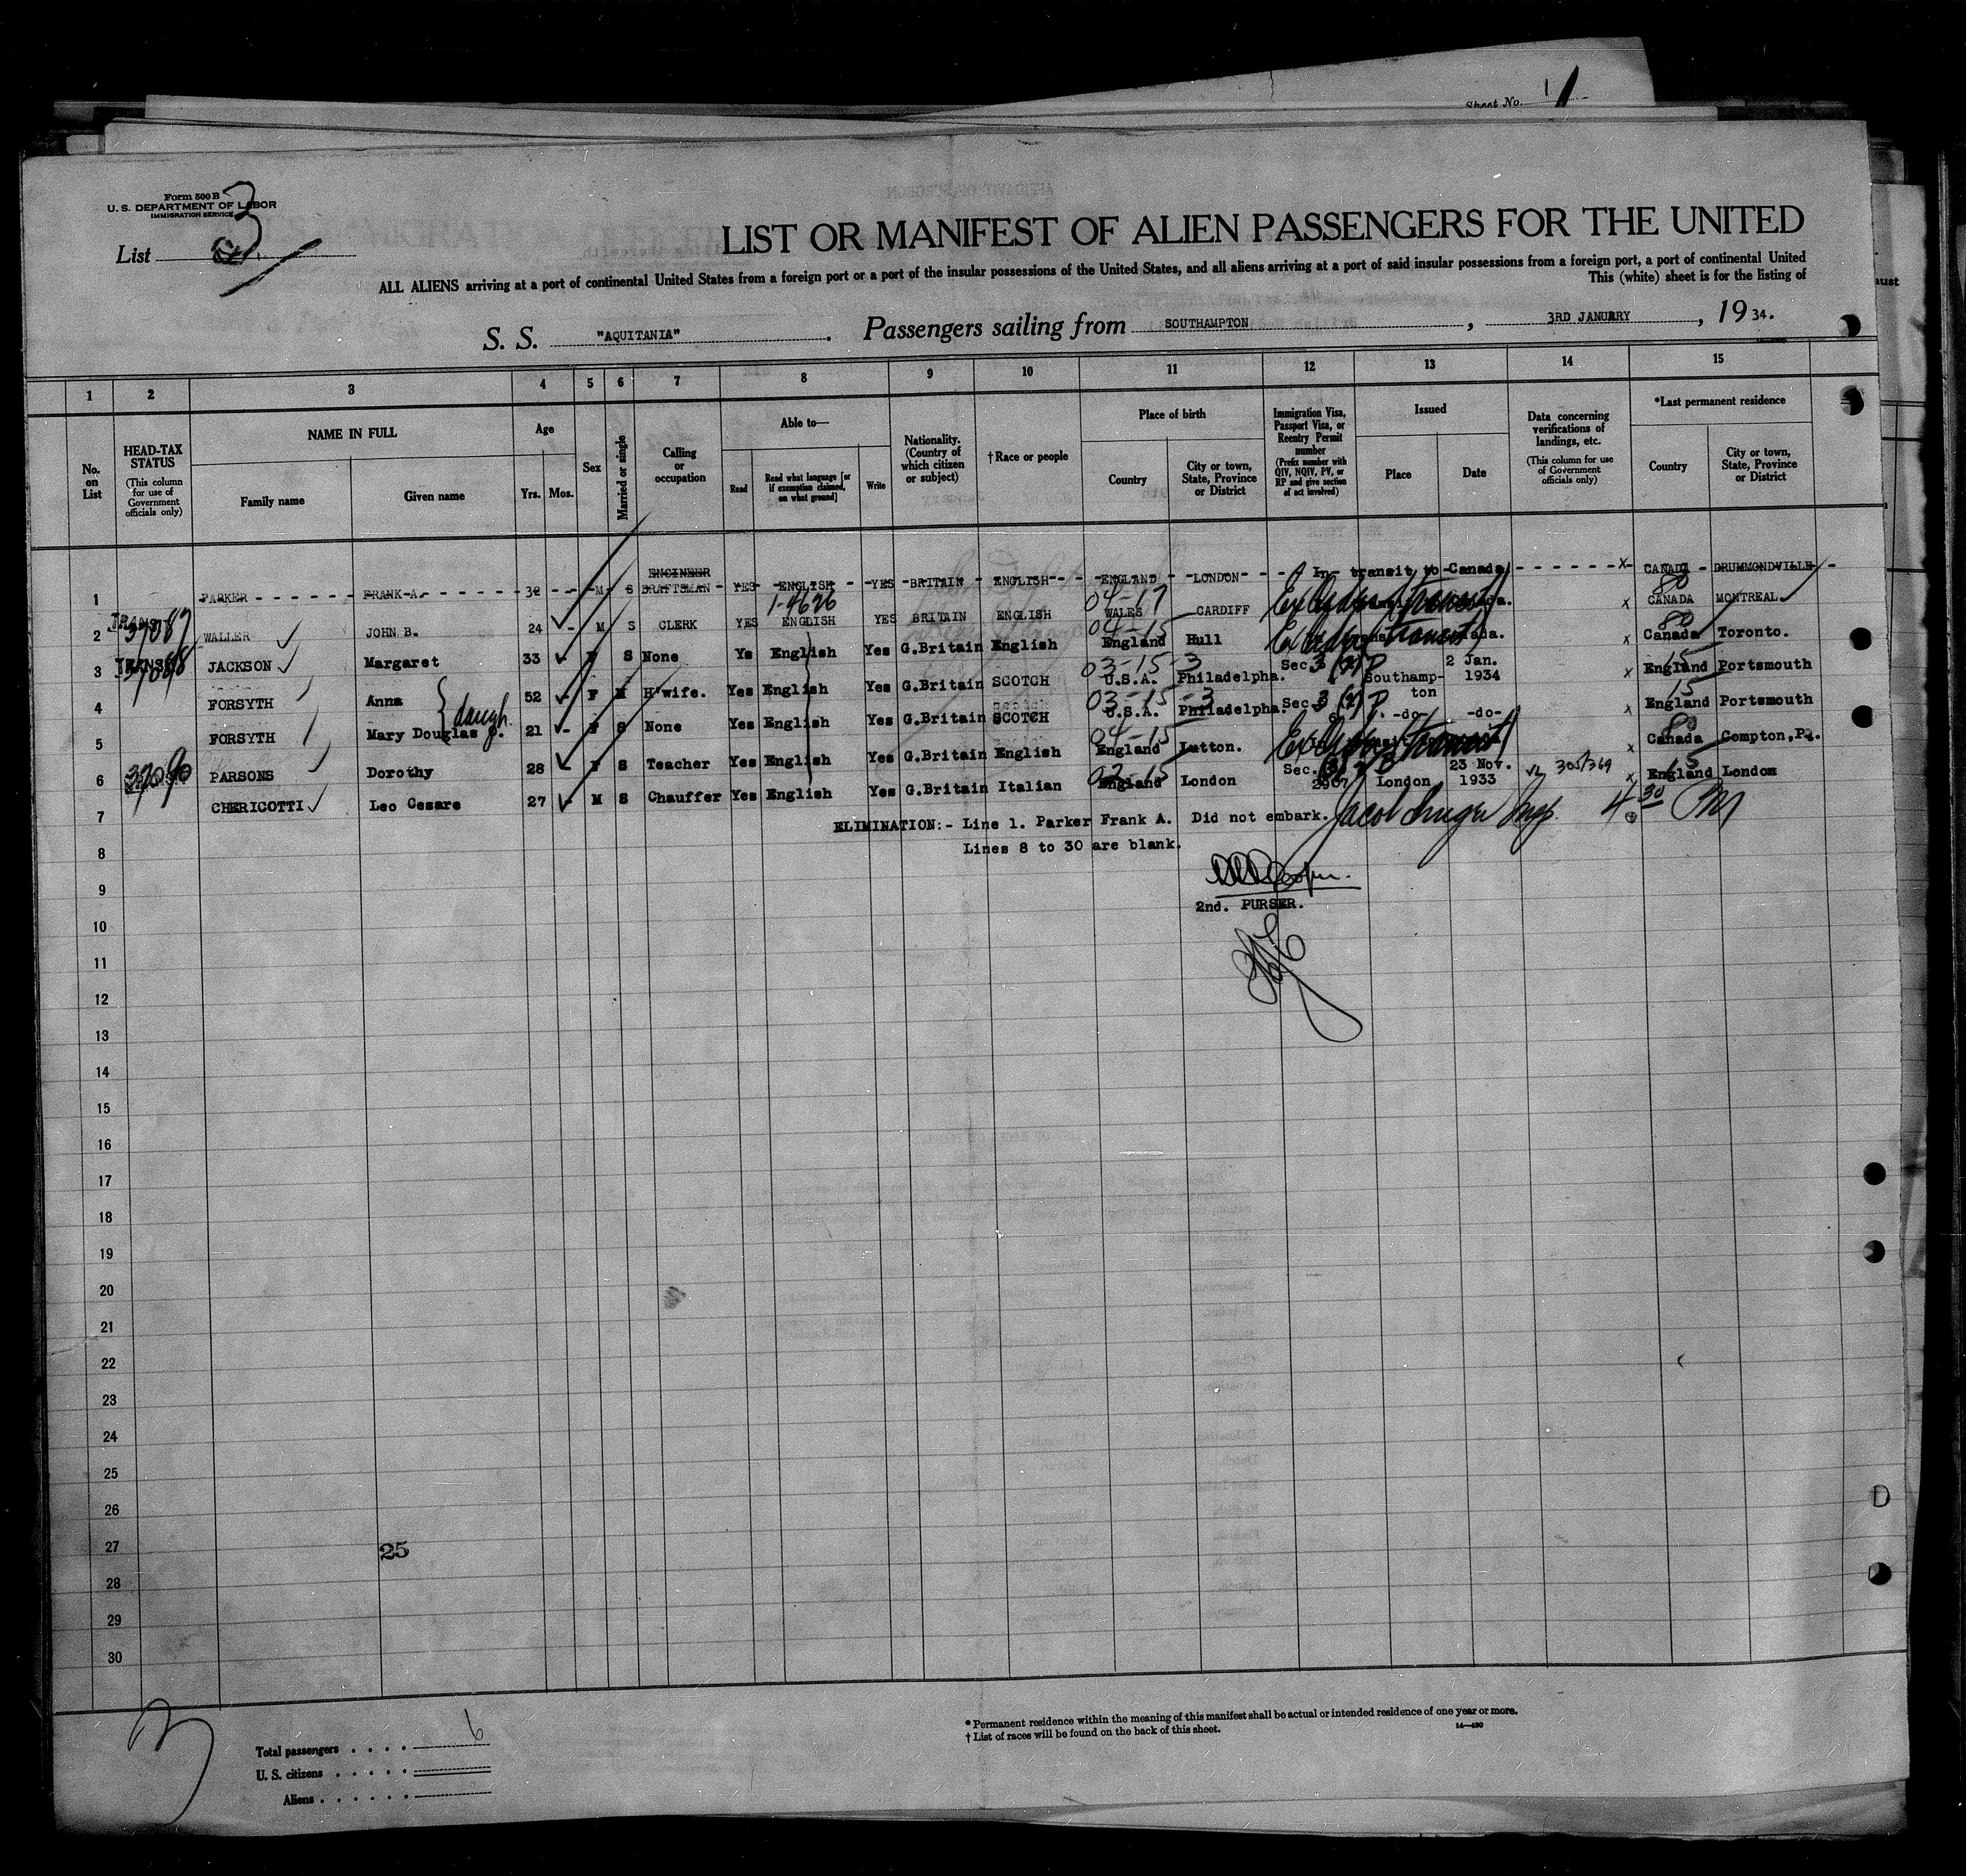 Sheet No. 1
Form 500 B
U. S. DEPARTMENT OF LABOR
IMMIGRATION SERVICE
List 3
LIST OR MANIFEST OF ALIEN PASSENGERS FOR THE UNITED
ALL ALIENS arriving at a port of continental United States from a foreign port or a port of the insular possessions of the United States, and all aliens arriving at a port of said insular possessions from a foreign port, a port of continental United
This (white) sheet is for the listing of
S. S. "AQUITANIA". Passengers sailing from SOUTHAMPTON, 3RD JANUARY, 1934.
1 2 3 4 5 6 7 8 9 10 11 12 13 14 15
No. on List
HEAD-TAX STATUS (This column for use of Government officials only)
NAME IN FULL
Family name
Given name
Age
Yrs. Mos.
Sex
Married or single
Calling or occupation
Able to—
Read
Read what language [or if exemption claimed, on what ground]
Write
Nationality. (Country of which citizen or subject)
†Race or people
Place of birth
Country
City or town, State, Province or District
Immigration Visa, Passport Visa, or Reentry Permit number (Prefix number with QIV, NQIV, PV, or RP and give section of act involved)
Issued
Place
Date
Data concerning verifications of landings, etc. (This column for use of Government officials only)
*Last permanent residence
Country
City or town, State, Province or District
ENGINEER
1 PARKER FRANK A. 32 M S DRAFTSMAN YES ENGLISH YES BRITAIN ENGLISH ENGLAND LONDON In transit to Canada. x CANADA DRUMMONDVILLE
1-4626 04-17 80
2 37087 WALLER JOHN B. 24 M S CLERK YES ENGLISH YES BRITAIN ENGLISH WALES CARDIFF x CANADA MONTREAL
04-15 80
3 TRANSIT JACKSON Margaret 33 F S None Ye English Yes G.Britain English England Hull x Canada Toronto.
03-15-3 Sec. 3 (2) P 2 Jan. 15
4 FORSYTH Anna 52 F M H'wife. Yes English Yes G.Britain SCOTCH U.S.A. Philadelpha. Southampton 1934 x England Portsmouth
daugh.
03-15-3 Sec. 3 (2) P 15
5 FORSYTH Mary Douglas 21 F S None Yes English Yes G.Britain SCOTCH U.S.A. Philadelpha. -do- -do- x England Portsmouth
04-15 80
6 37090 PARSONS Dorothy 28 F S Teacher Yes English Yes G.Britain English England Lutton. x Canada Compton,
Sec. 23 Nov. 305/369 15
7 CHERICOTTI Leo Cesare 27 M S Chauffer Yes English Yes G.Britain Italian England London 2907 London 1933 x England London
ELIMINATION:- Line 1. Parker Frank A. Did not embark.
4 30 PM
8 Lines 8 to 30 are blank.
9
2nd. PURSER.
10
11
12
13
14
15
16
17
18
19
20
21
22
23
24
25
26
27 25
28
29
30
3
Total passengers 6
U. S. citizens
Aliens
* Permanent residence within the meaning of this manifest shall be actual or intended residence of one year or more.
† List of races will be found on the back of this sheet.
14—430